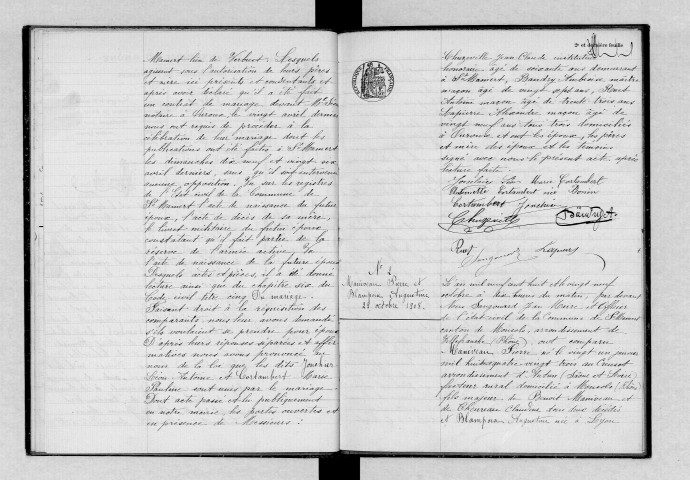 Mamert lieu de Verbust. Lesquels
agissant sous l'autorisation de leurs pères
et mère ici présents et consentants et
après avoir déclaré qu'il a été fait
un contrat de mariage devant Me
notaire à Ouroux le vingt avril dernier
nous ont requis de procéder à la
célébration de leur mariage dont les
publications ont été faites à St Mamert
les dimanches dix neuf et vingt six
avril derniers, sans qu'il soit intervenu
aucune opposition. Vu sur les registres
de l'Etat civil de la Commune de
St Mamert l'acte de naissance du futur
époux, l'acte de décès de sa mère,
le livret militaire du futur époux
constatant qu'il fait partie de la
réserve de l'armée active, Vu
l'acte de naissance de la future épouse
Desquels actes et pièces, il a été donné
lecture ainsi que du chapitre six du
Code civil titre cinq Du mariage.
Faisant droit à la réquisition des
comparants nous leur avons demandé
s'ils voulaient se prendre pour époux
D'après leurs réponses séparées et affir
matives nous avons prononcé au
nom de la loi que les dits Jonchier
Antoine et Cortambert Marie
Pauline sont unis par le mariage
Dont acte passé et lu publiquement
en notre mairie, les portes ouvertes et
en présence de Messieurs :
2e et dernière feuille
Chugeville Jean Claude instituteur
honoraire âgé de soixante ans demeurant
à St Mamert, Baudry Ambroise, maître
maçon âgé de vingt sept ans,
Antoine maçon âgé de trente trois ans
Lapierre Alexandre maçon âgé de
vingt neuf ans tous trois domiciliés
à Ouroux et ont les époux, les pères
et mère des époux et les témoins
signé avec nous le présent acte après
lecture faite.
Marie Cortambert
Cortambert Jonchier
Chugeville Baudry
Lapierre
N° 2
Maniveau Pierre et
Blampoa Augustine
28 octobre 1908.
L'an mil neuf cent huit et vingt neuf
octobre à dix heures du matin, par devant
Nous Sangouard Jean Maire et Officier
de l'état civil de la Commune de St Mamert
canton de Monsols, arrondissement de
Villefranche (Rhône) ont comparu
Maniveau Pierre né le vingt un janvier
mil huit cent quatre vingt trois au Creusot
arrondissement d'Autun (Saône et Loire)
facteur rural domicilié à Monsols (Rhône)
fils majeur de Benoit Manivean et
de Thoureau Claudine tous deux décédés
et Blampoa Augustine née à Lyon